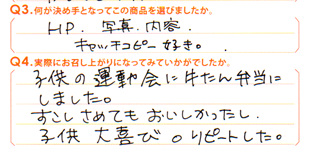 Q3.何が決め手となってこの商品を選びましたか。
HP.写真.内容.
キャッチコピー好き。
Q4.実際にお召し上がりになってみていかがでしたか。
子供の運動会に牛たん弁当に
しました。
すこしさめてもおいしかったし、
子供大喜び○リピートした。